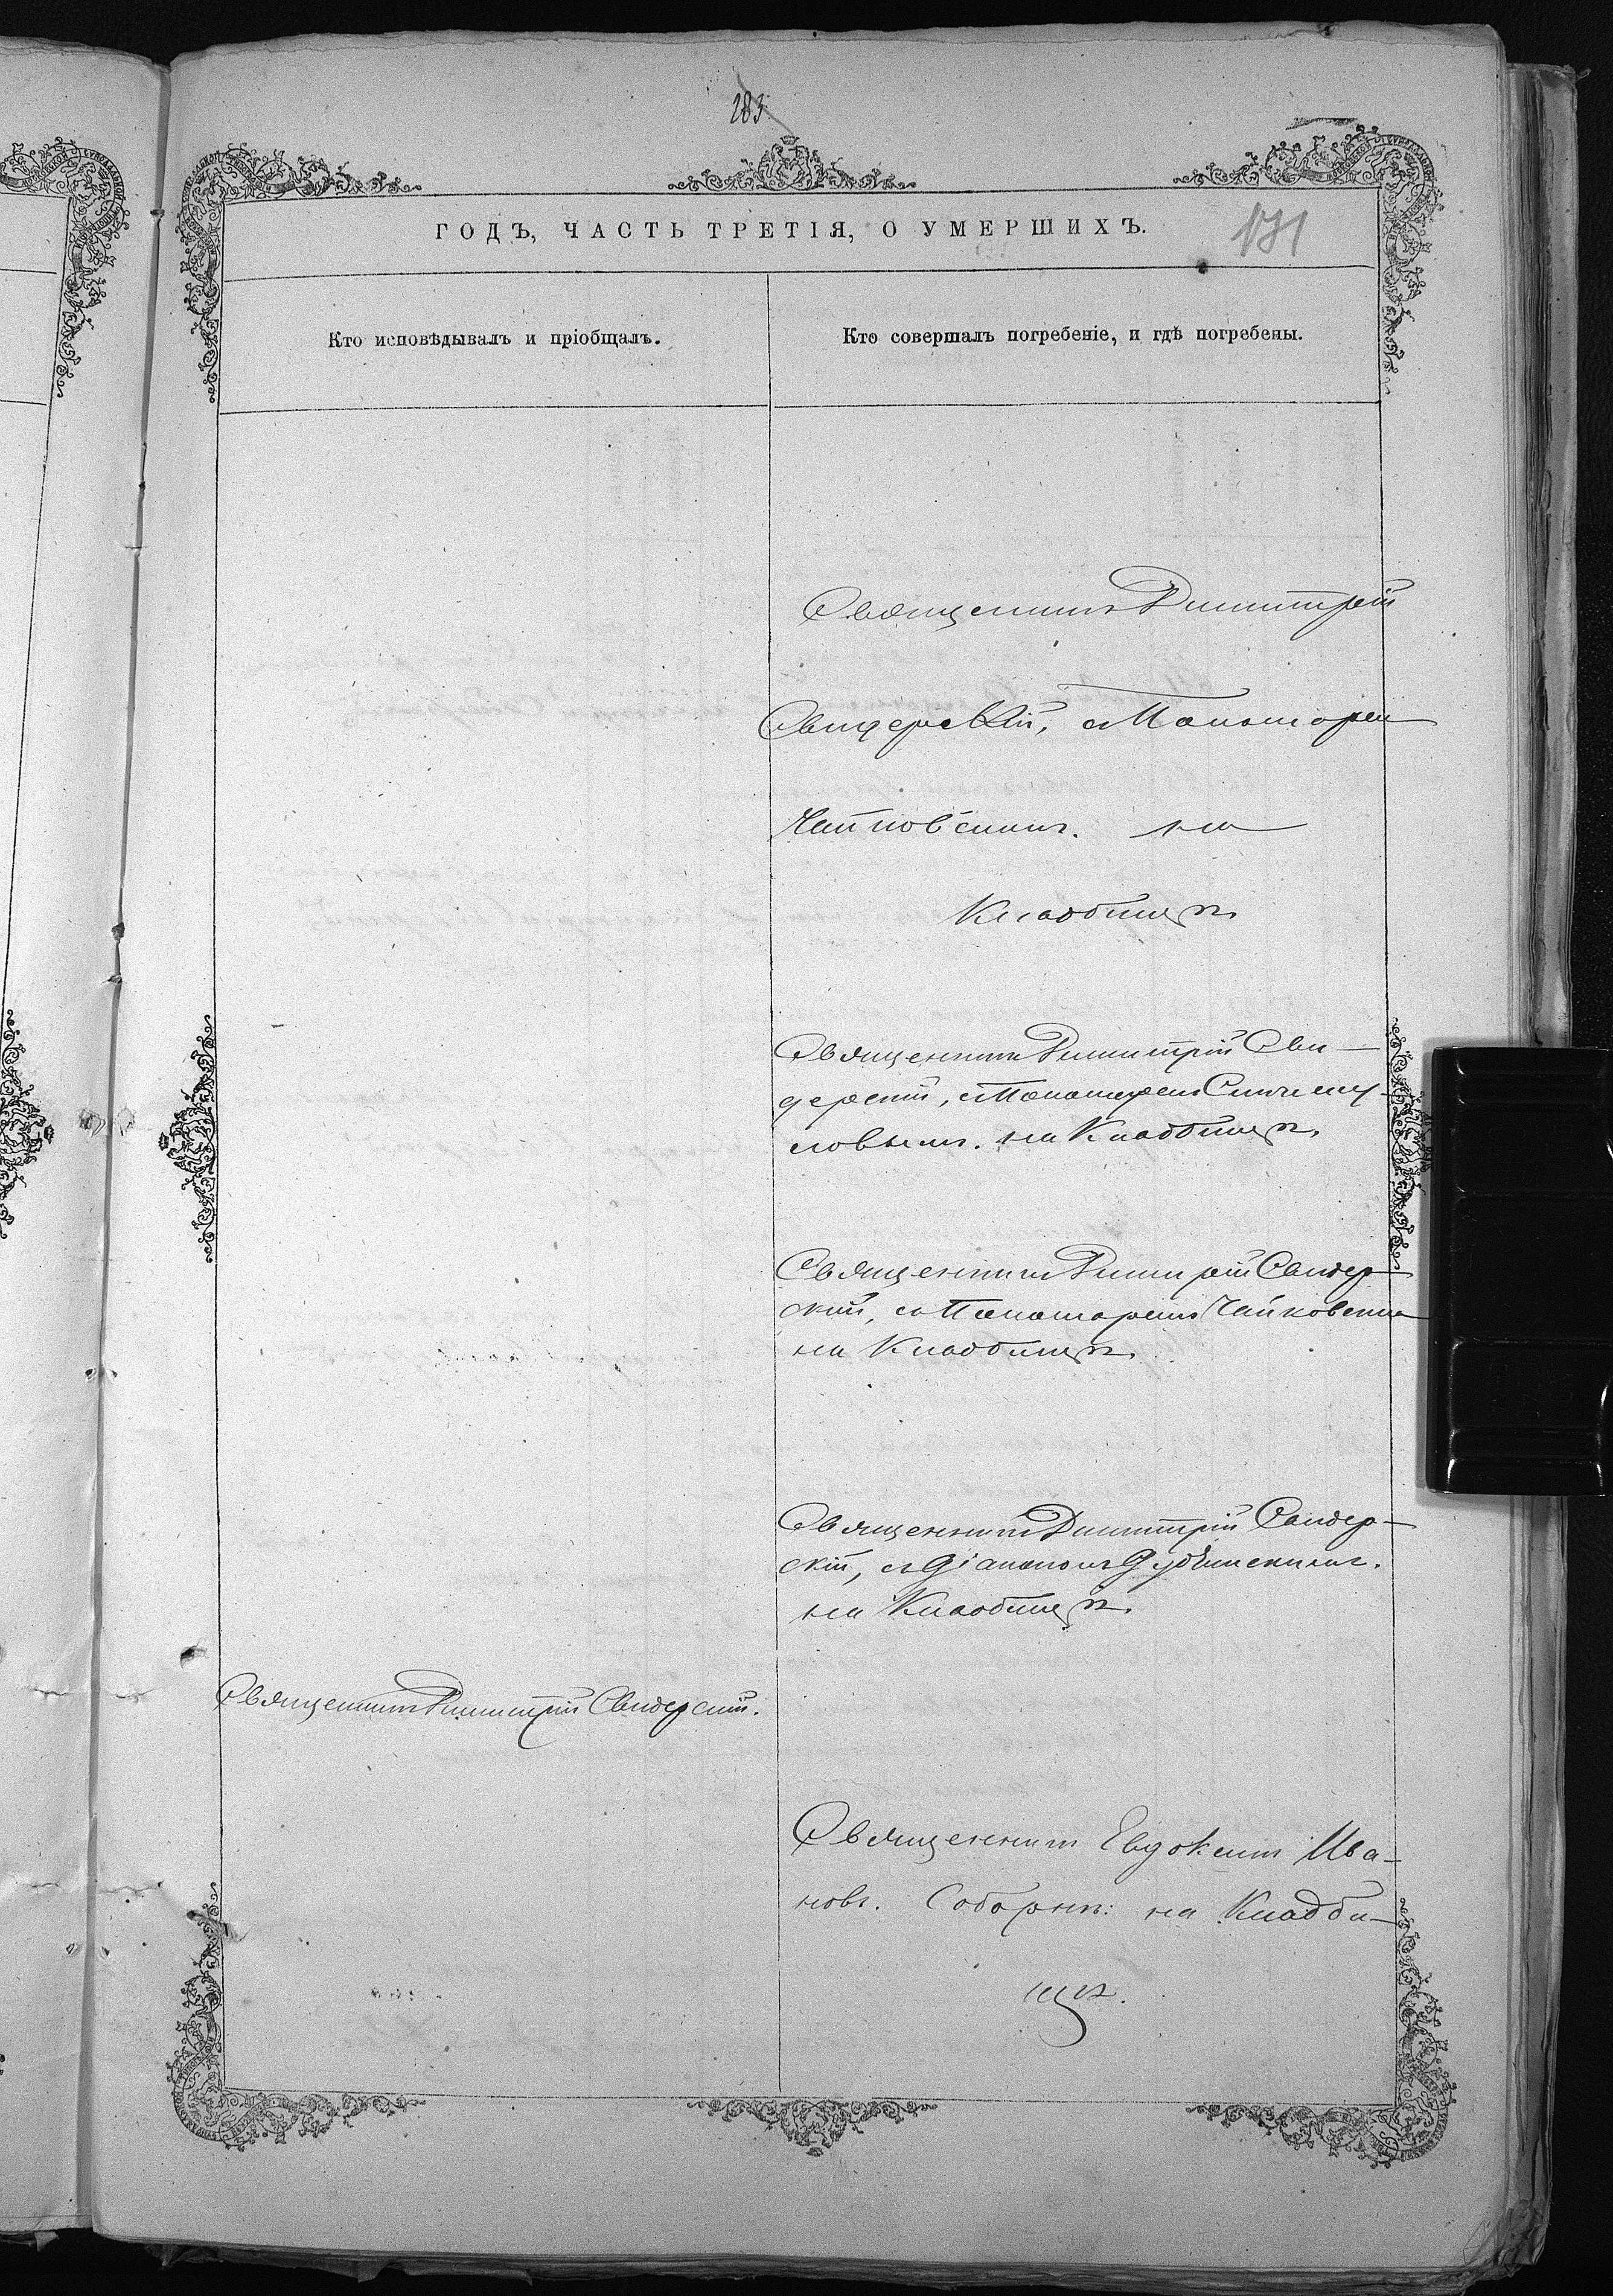 183
ГОДЪ, ЧАСТЬ ТРЕТІЯ, О УМЕРШИХЪ.
171
Кто исповѣдывалъ и пріобщалъ.
Кто совершалъ погребеніе, и гдѣ погребены.
Священникъ Димитрій
Свидерскій, съ Панамарем
Чайковскимъ. на
Кладбищѣ.
Священникъ Димитрій Сви-
дерскій, с Панамаремъ
на Кладбищѣ.
Священникъ Димитрій Свидер-
скій, съ Панамаремъ Чайковским
на Кладбищѣ.
Священникъ Димитрій Свидер-
скій, съ Діакономъ
на Кладбищѣ.
Священникъ Димитрій Свидерскій.
Священникъ Евдокимъ Ива-
новъ. Соборнѣ: на Кладби-
щѣ.